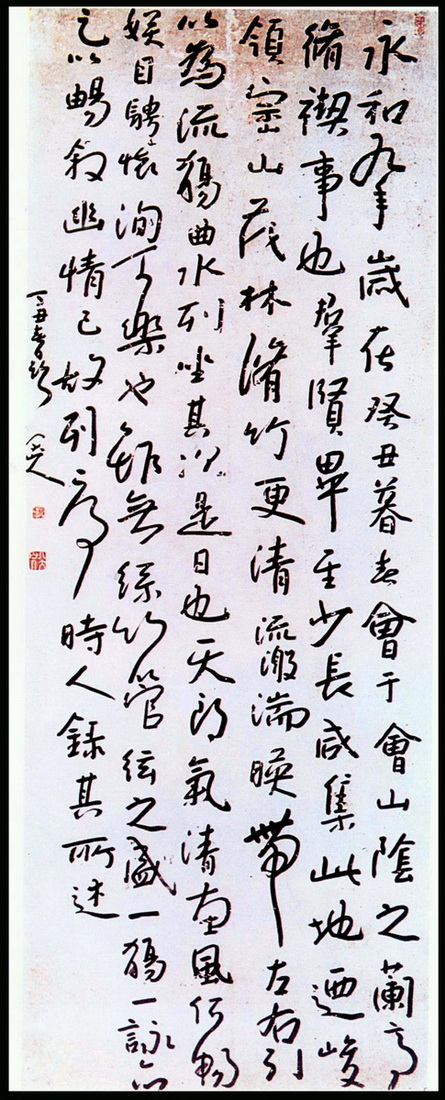 永和九年歲在癸丑暮春會于會山陰之蘭亭
脩禊事也羣賢畢至少長咸集此地迺峻
領崇山茂林脩竹更清流激湍暎帶左右引
以為流觴曲水列坐其次是日也天朗氣清惠風和暢
娛目騁懷洵可樂也雖無絲竹管絃之盛一觴一詠亦
足以暢敘幽情已故列序時人錄其所述
丁丑春
八大山人